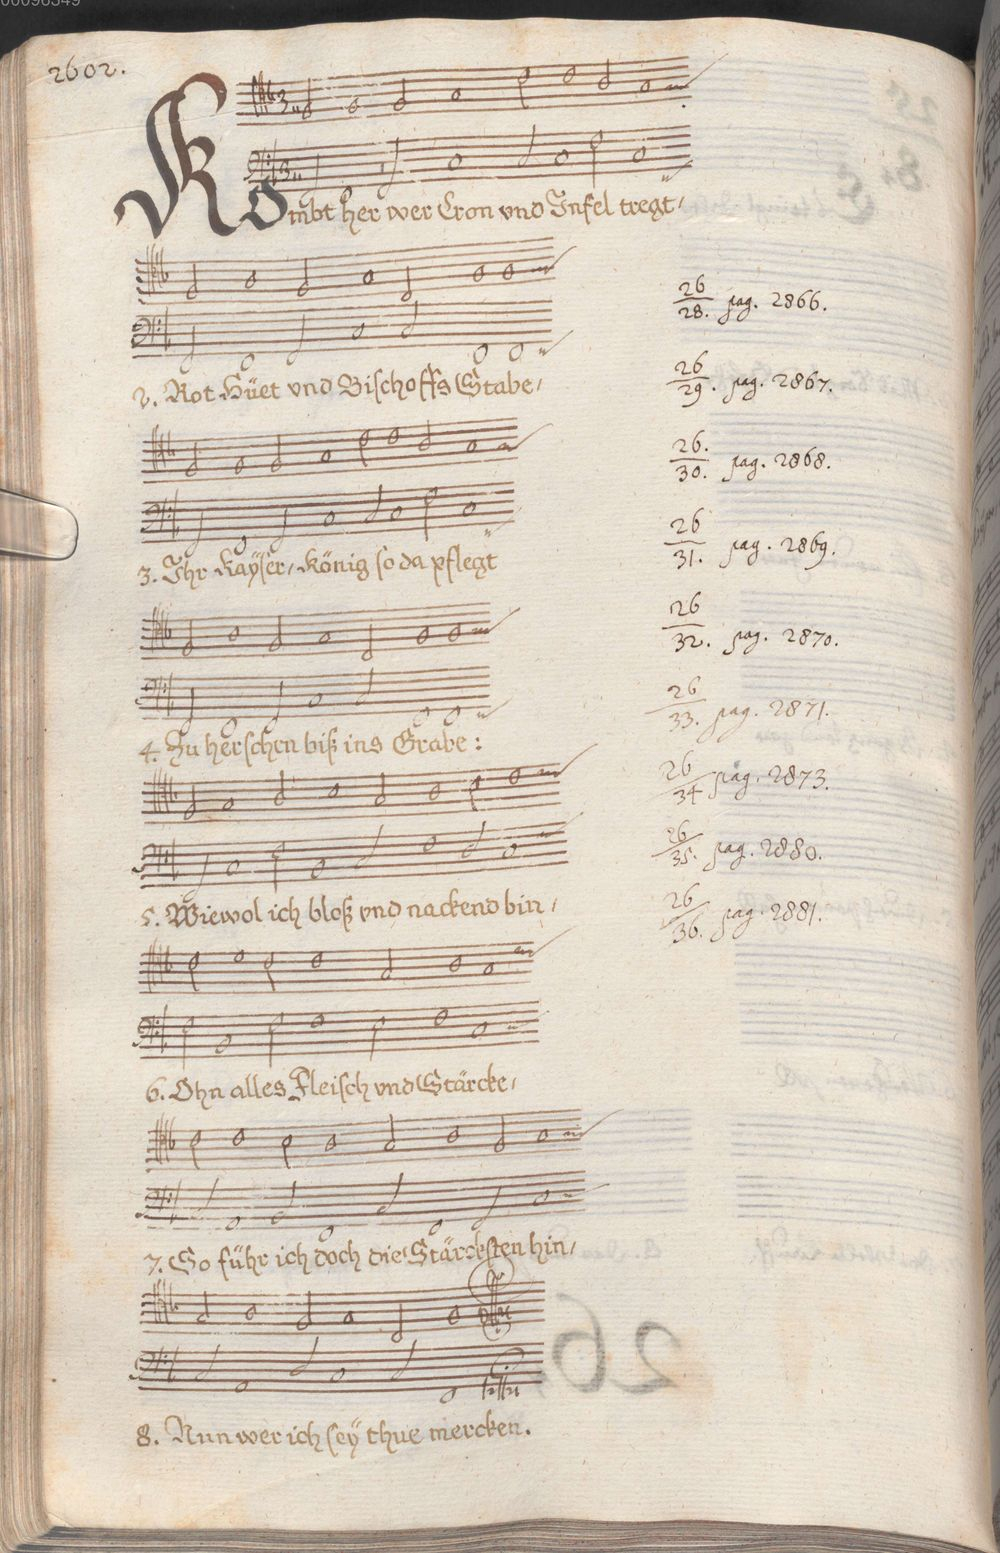 2602.
Kombt her wer Cron vnd Infel tregt,
26/28. pag. 2866.
2. Rot Hüet vnd Bischoffs Stabe,
26/29. pag. 2867.
26./30. pag. 2868.
3. Ihr Kaÿser, König so da pflegt
26/31. pag. 2869.
26/32. pag. 2870.
4. Zu herschen biß ins Grabe:
26/33. pag. 2871.
26/34 pag. 2873.
26/35. pag. 2880.
5. Wiewol ich bloß vnd nackend bin,
26/36. pag. 2881.
6. Ohn alles Fleisch vnd Stärcke,
7. So führ ich doch die Stärcksten hin,
8. Nun wer ich seÿ thue mercken.